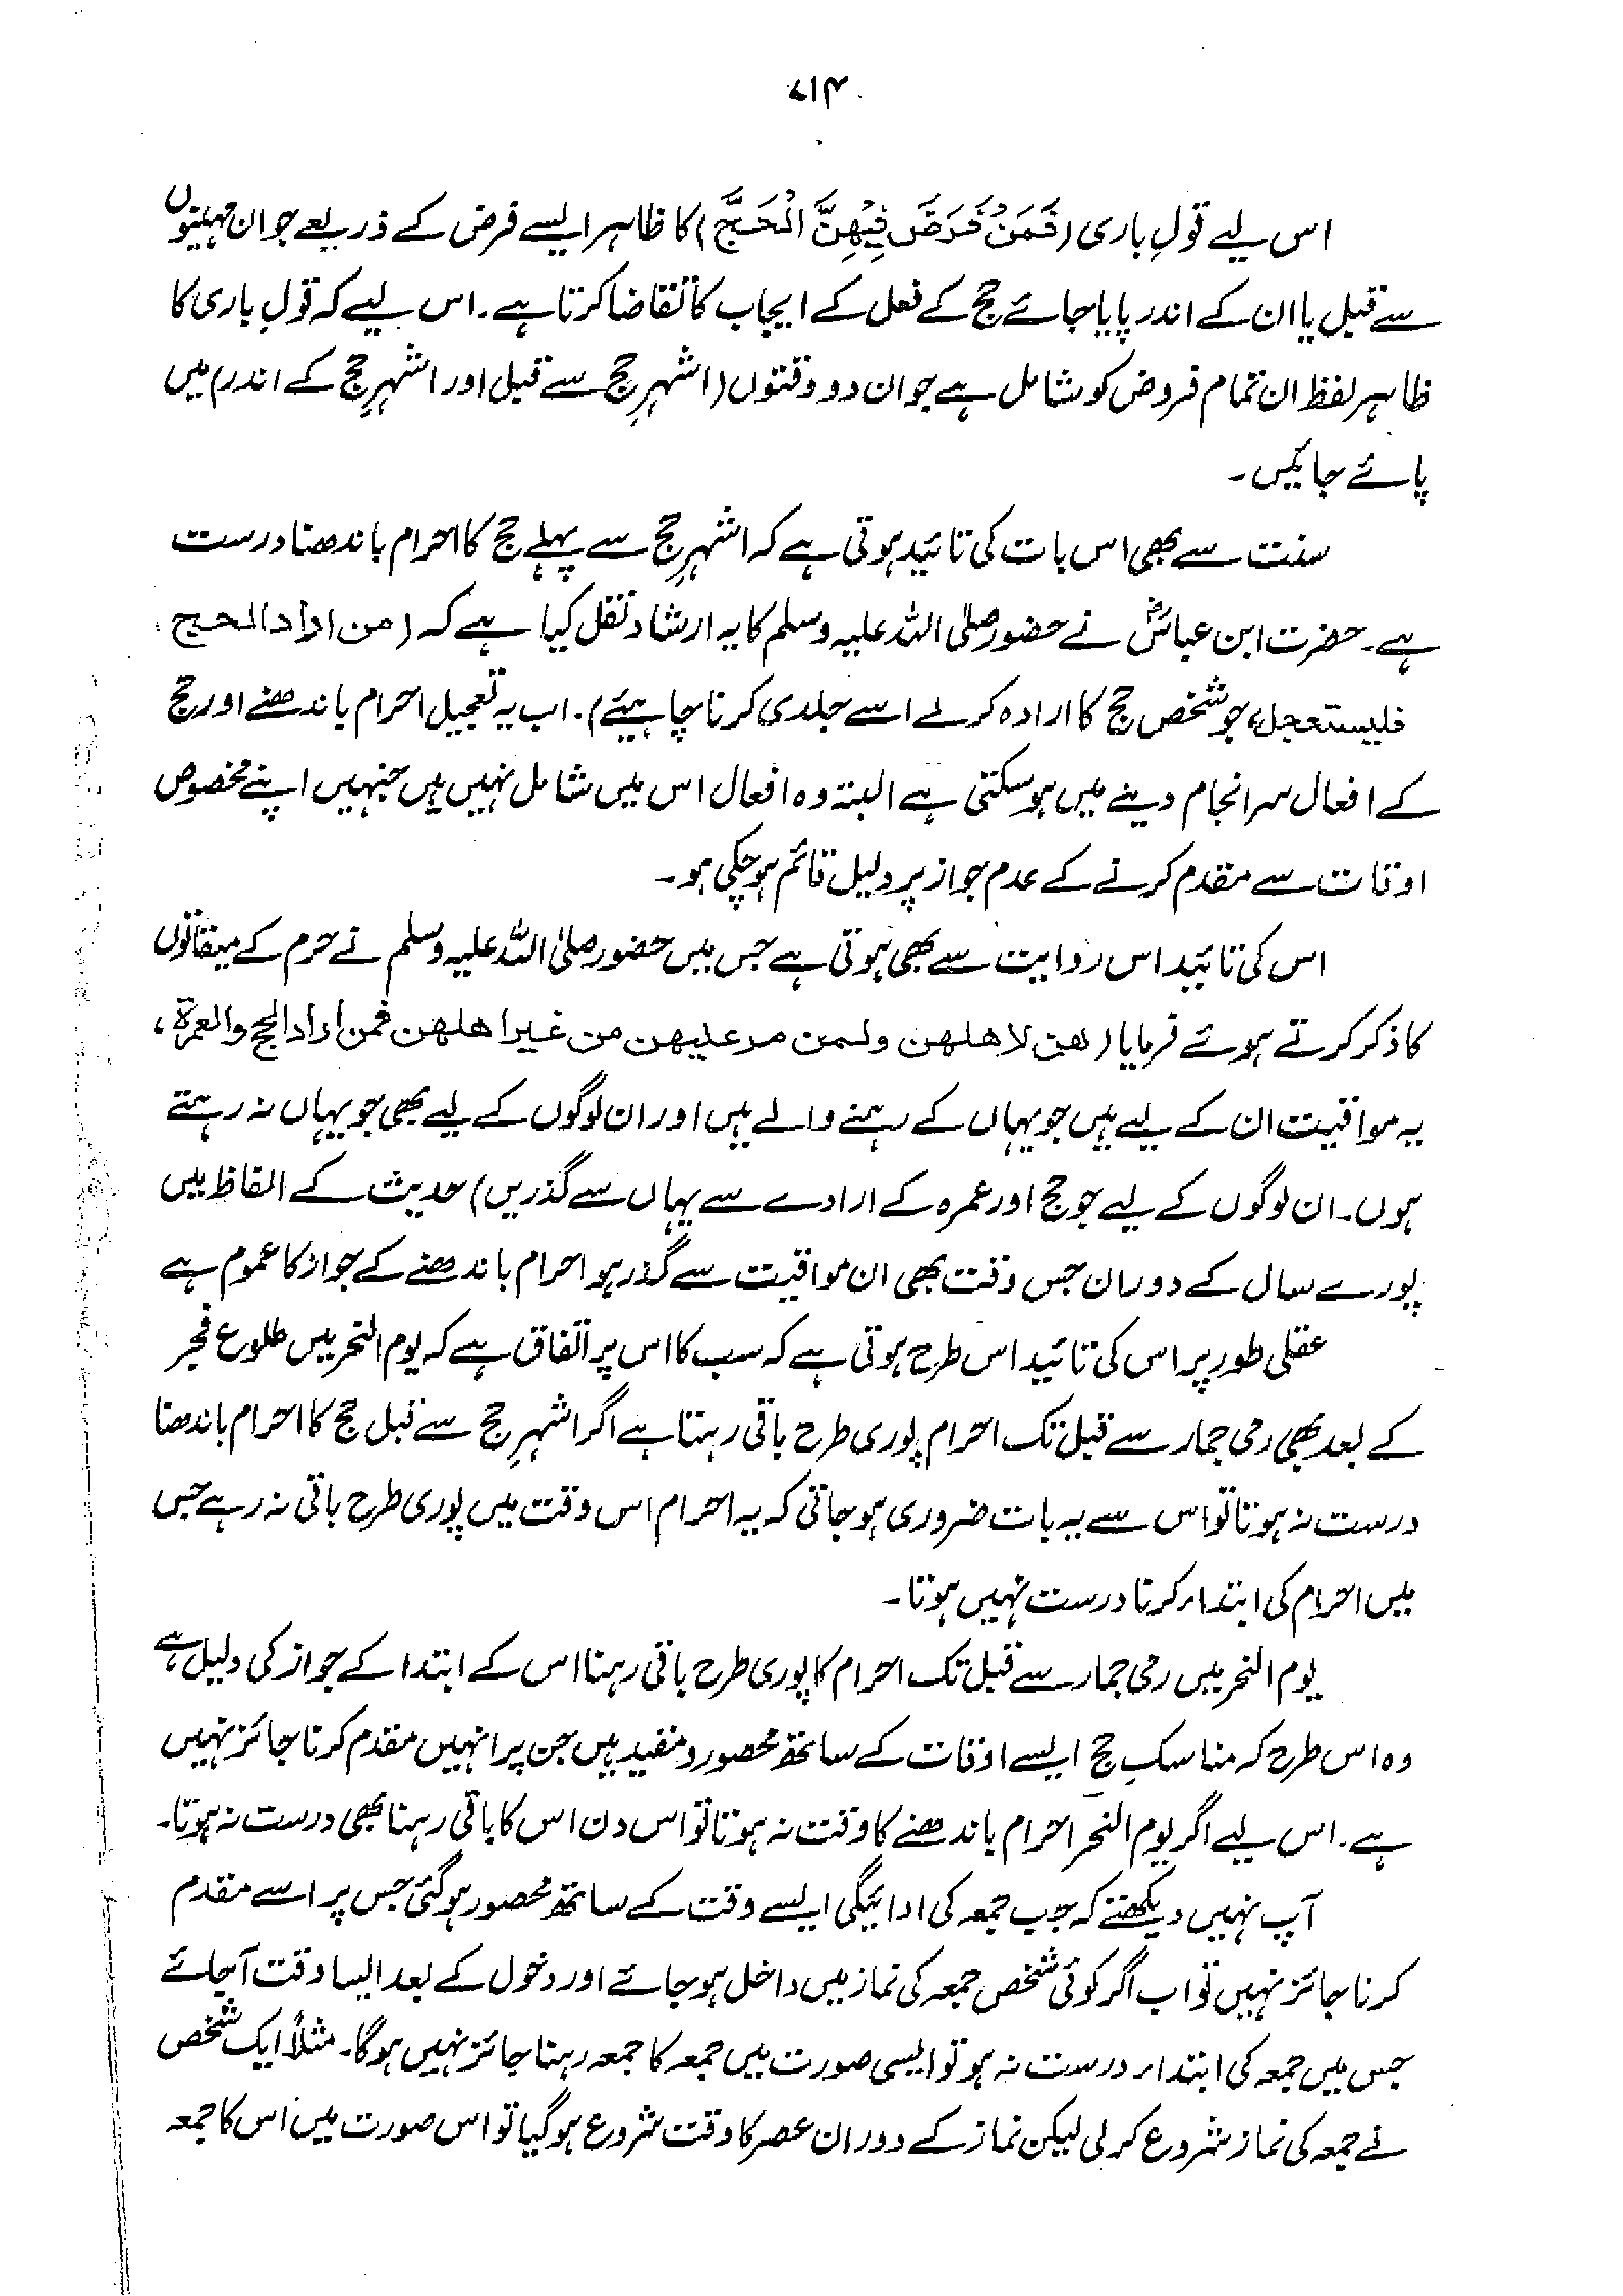 ۷۱۴
اس لیے قولِ باری (فَمَنْ فَرَضَ فِيْهِنَّ الْحَجَّ) کا ظاہر ایسے فرض کے ذریعے جو ان مہینوں
سے قبل یا ان کے اندر پایا جائے حج کے فعل کے ایجاب کا تقاضا کرتا ہے۔ اس لیے کہ قولِ باری کا
ظاہر لفظ ان تمام فروض کو شامل ہے جو ان دو وقتوں (اشہرِ حج سے قبل اور اشہرِ حج کے اندر) میں
پائے جائیں۔
سنت سے بھی اس بات کی تائید ہوتی ہے کہ اشہرِ حج سے پہلے حج کا احرام باندھنا درست
ہے۔ حضرت ابن عباسؓ نے حضور صلی اللہ علیہ وسلم کا یہ ارشاد نقل کیا ہے کہ (من اراد الحج
فلیستعجل، جو شخص حج کا ارادہ کرلے اسے جلدی کرنا چاہیئے)۔ اب یہ تعجیل احرام باندھنے اور حج
کے افعال سرانجام دینے میں ہوسکتی ہے البتہ وہ افعال اس میں شامل نہیں ہیں جنہیں اپنے مخصوص
اوقات سے مقدم کرنے کے عدم جواز پر دلیل قائم ہوچکی ہو۔
اس کی تائید اس روایت سے بھی ہوتی ہے جس میں حضور صلی اللہ علیہ وسلم نے حرم کے میقاتوں
کا ذکر کرتے ہوئے فرمایا (ھن لاھلھن ولمن مر علیھن من غیر اھلھن فمن اراد الحج والعمرۃ،
یہ مواقیت ان کے لیے ہیں جو یہاں کے رہنے والے ہیں اور ان لوگوں کے لیے بھی جو یہاں نہ رہتے
ہوں۔ ان لوگوں کے لیے جو حج اور عمرہ کے ارادے سے یہاں سے گذریں) حدیث کے الفاظ میں
پورے سال کے دوران جس وقت بھی ان مواقیت سے گذر ہو احرام باندھنے کے جواز کا عموم ہے
عقلی طور پر اس کی تائید اس طرح ہوتی ہے کہ سب کا اس پر اتفاق ہے کہ یوم النحر میں طلوع فجر
کے بعد بھی رمی جمار سے قبل تک احرام پوری طرح باقی رہتا ہے اگر اشہرِ حج سے قبل حج کا احرام باندھنا
درست نہ ہوتا تو اس سے یہ بات ضروری ہوجاتی کہ یہ احرام اس وقت میں پوری طرح باقی نہ رہے جس
میں احرام کی ابتداء کرنا درست نہیں ہوتا۔
یوم النحر میں رمی جمار سے قبل تک احرام کا پوری طرح باقی رہنا اس کے ابتدا کے جواز کی دلیل ہے
وہ اس طرح کہ مناسکِ حج ایسے اوقات کے ساتھ محصور و مقید ہیں جن پر انہیں مقدم کرنا جائز نہیں
ہے۔ اس لیے اگر یوم النحر احرام باندھنے کا وقت نہ ہوتا تو اس دن اس کا باقی رہنا بھی درست نہ ہوتا۔
آپ نہیں دیکھتے کہ جب جمعہ کی ادائیگی ایسے وقت کے ساتھ محصور ہوگئی جس پر اسے مقدم
کرنا جائز نہیں تو اب اگر کوئی شخص جمعہ کی نماز میں داخل ہوجائے اور دخول کے بعد ایسا وقت آجائے
جس میں جمعہ کی ابتداء درست نہ ہو تو ایسی صورت میں جمعہ کا جمعہ رہنا جائز نہیں ہوگا۔ مثلاً ایک شخص
نے جمعہ کی نماز شروع کرلی لیکن نماز کے دوران عصر کا وقت شروع ہوگیا تو اس صورت میں اس کا جمعہ